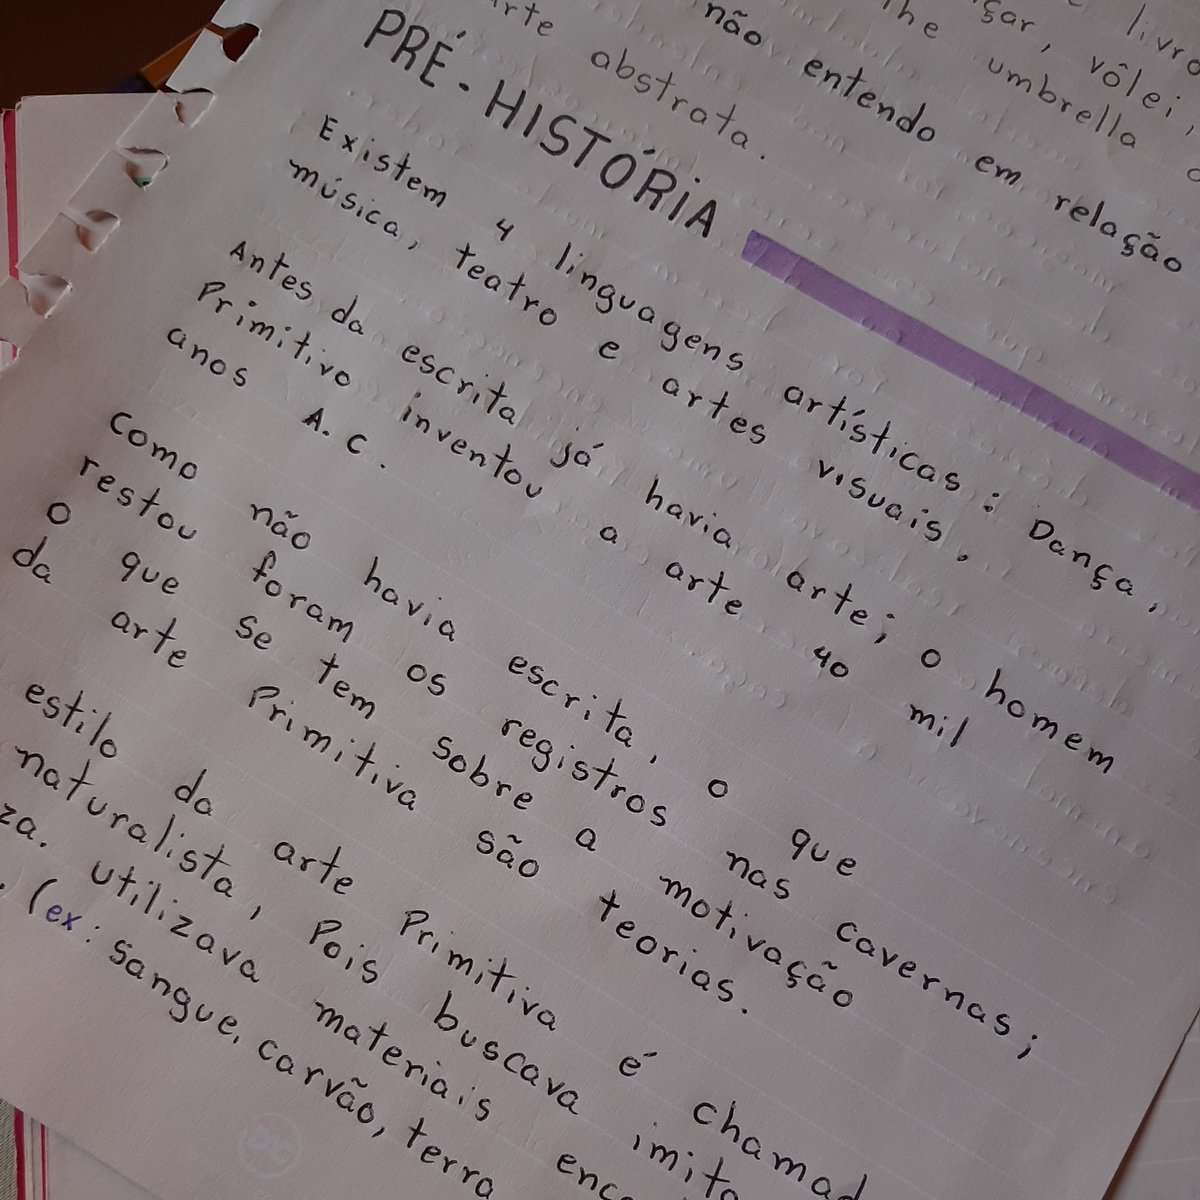 livro
çar, vôlei,
lhe umbrella
não entendo em relação
arte abstrata.
PRÉ-HISTÓRIA
Existem 4 linguagens artísticas: Dança,
música, teatro e artes visuais.
Antes da escrita já havia arte; o homem
Primitivo inventou a arte 40 mil
anos A.C.
Como não havia escrita, o que
restou foram os registros nas cavernas;
o que se tem sobre a motivação
da arte Primitiva são teorias.
estilo da arte Primitiva é chamad
naturalista, Pois buscava imita
za. utilizava materiais enco
(ex: sangue, carvão, terra